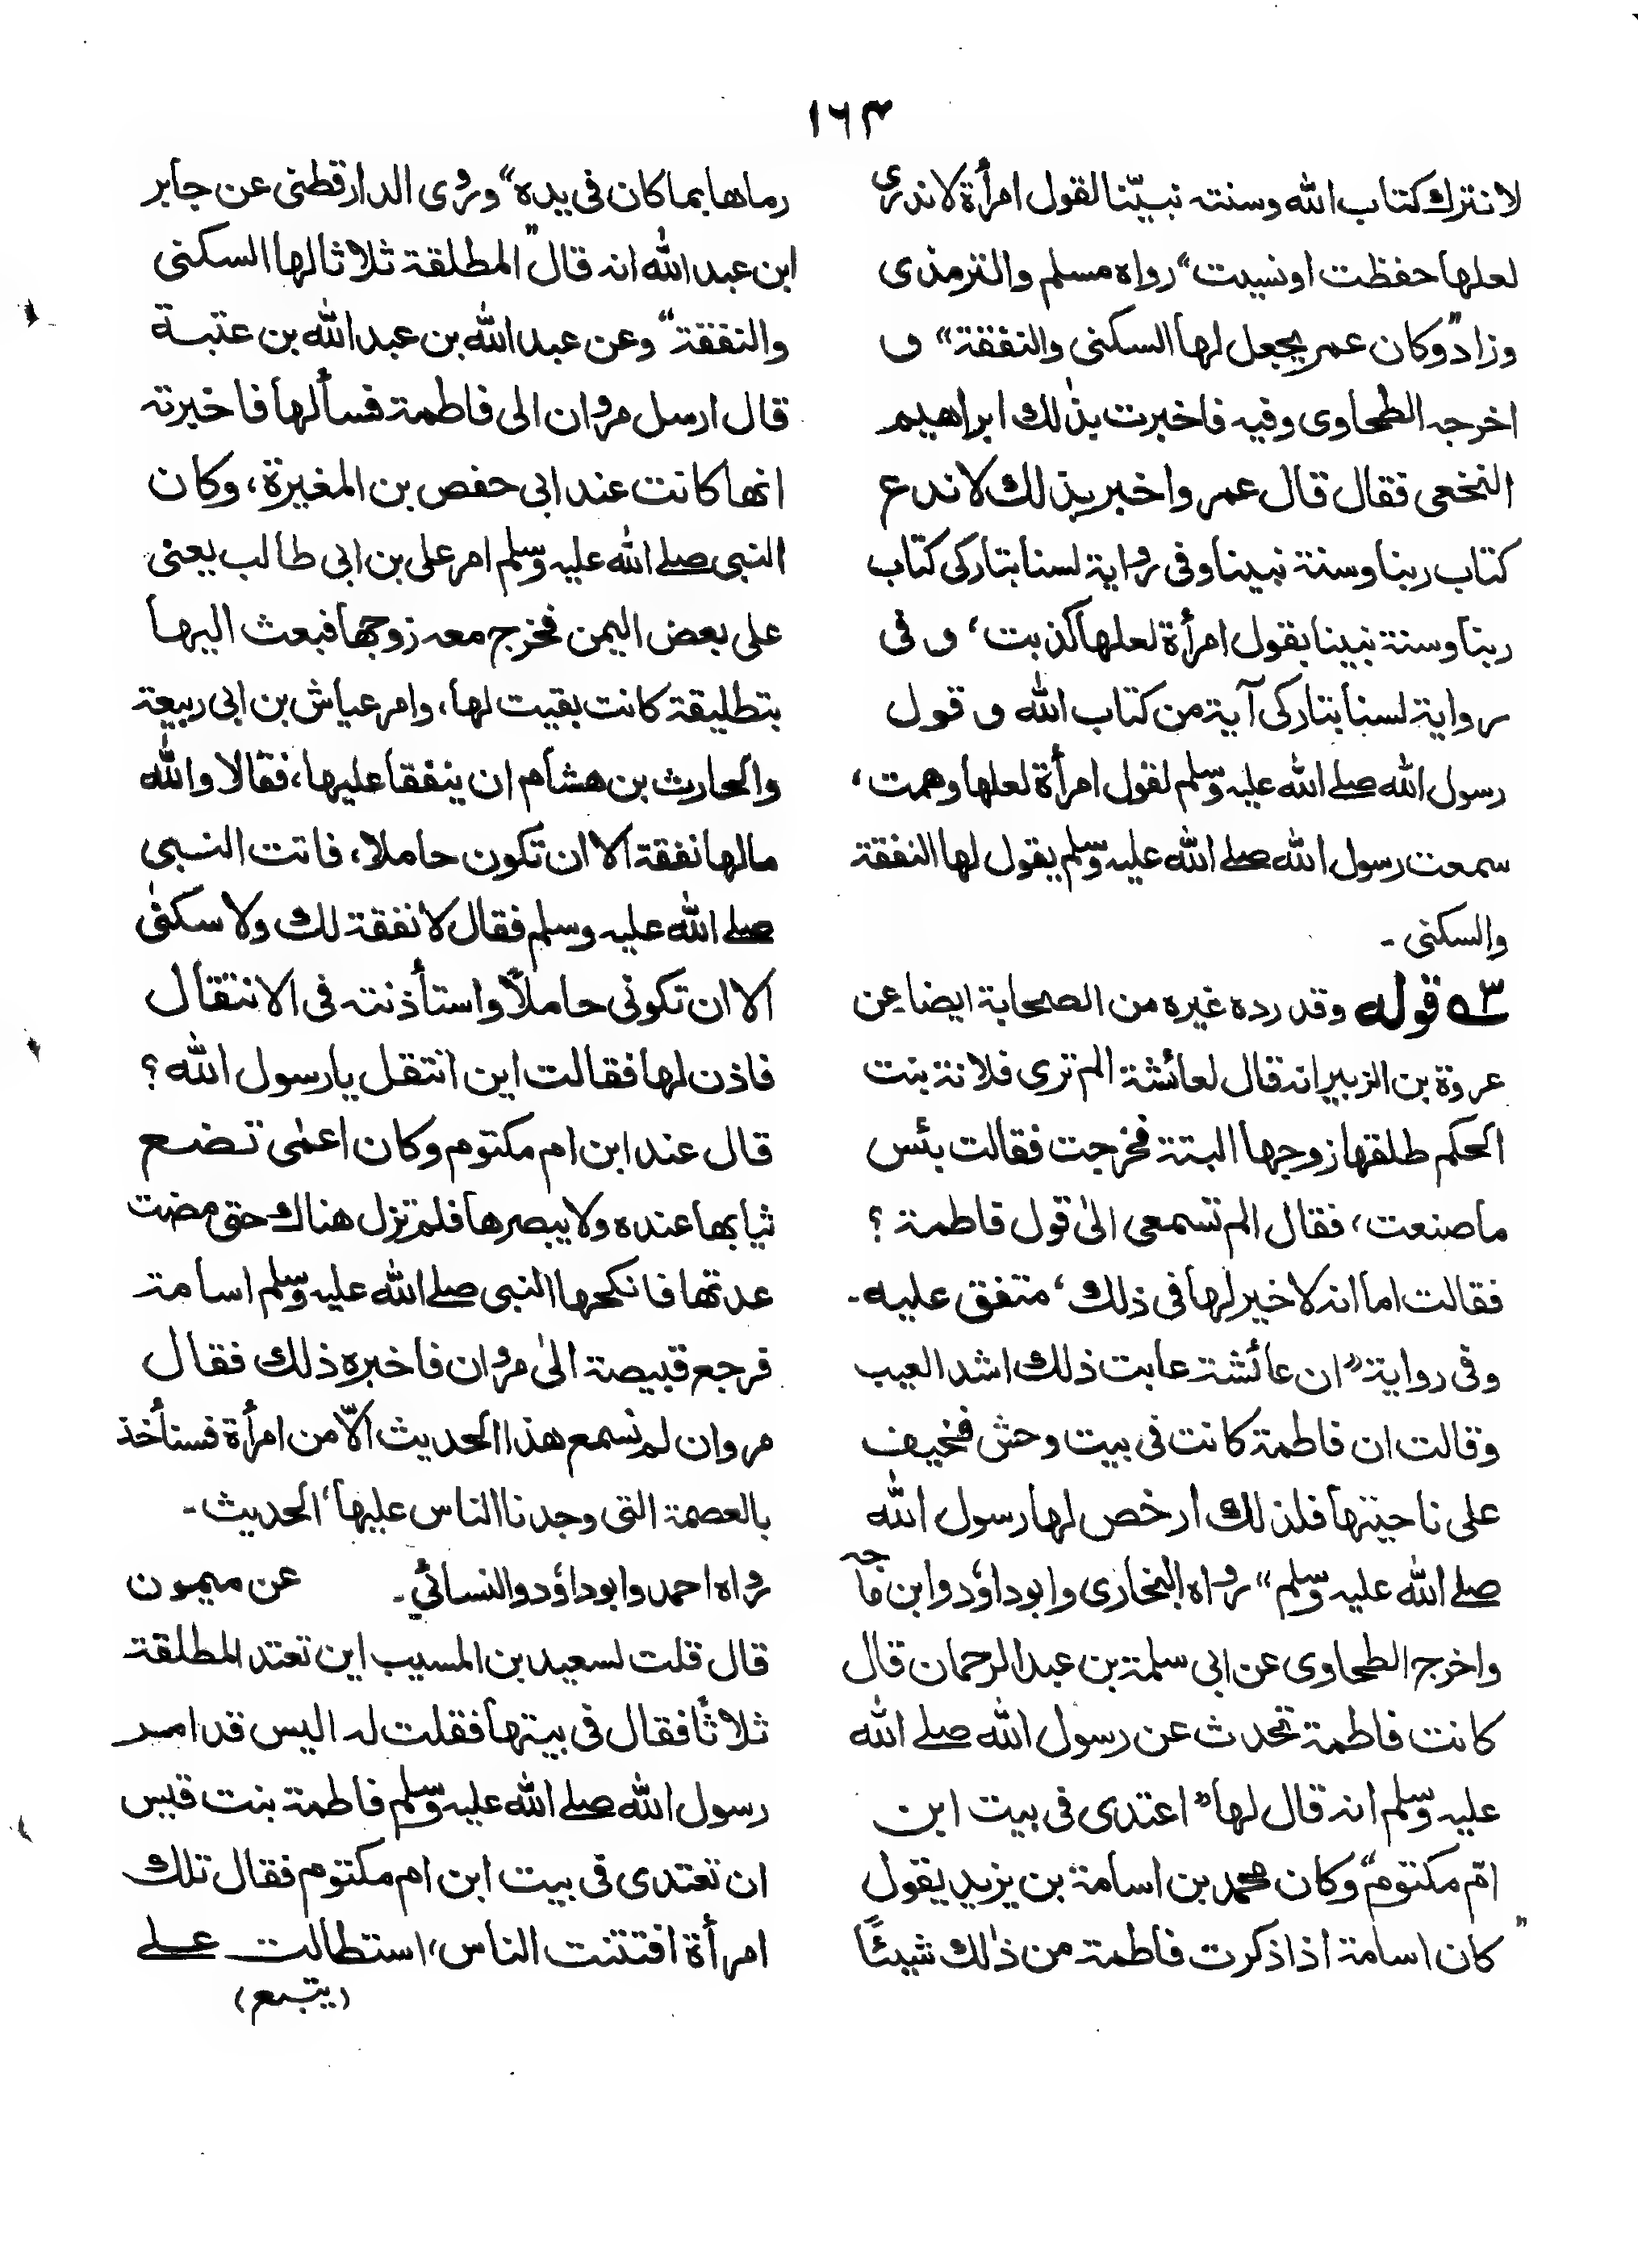 ١٦٣
لا نترك كتاب الله وسنته نبيّنا لقول امرأة لا ندرى
لعلها حفظت او نسيت“ رواه مسلم والترمذى
وزاد”وكان عمر يجعل لها السكنى والنفقة“ و
اخرجه الطحاوى وفيه فاخبرت بذٰلك ابراهيم
النخعى فقال قال عمر واخبر بذلك لا ندع
كتاب ربنا وسنة نبينا وفى رواية لسنا بتاركى كتاب
ربنا وسنة نبينا بقول امرأة لعلها كذبت، و فى
رواية لسنا بتاركى آية من كتاب الله و قول
رسول الله صلے الله عليه وسلم لقول امرأة لعلها وهمت،
سمعت رسول الله صلے الله عليه وسلم يقول لها النفقة
والسكنى ۔
٣ے قوله وقد رده غيره من الصحابة ايضا عن
عروة بن الزبير انه قال لعائشة الم ترى فلانة بنت
الحكم طلقها زوجها البتة فخرجت فقالت بئس
ما صنعت، فقال الم تسمعى الىٰ قول فاطمة ؟
فقالت اما انه لا خير لها فى ذلك، متفق عليه۔
وفى رواية ”ان عائشة عابت ذلك اشد العيب
وقالت ان فاطمة كانت فى بيت وحش فخيف
على ناحيتها فلذلك ارخص لها رسول الله
صلے الله عليه وسلم“ رواه البخارى وابوداؤد وابن ماجه
واخرج الطحاوى عن ابى سلمة بن عبد الرحمان قال
كانت فاطمة تحدث عن رسول الله صلے الله
عليه وسلم انه قال لها ”اعتدى فى بيت ابن
امّ مكتوم“ وكان محمد بن اسامة بن يزيد يقول
”كان اسامة اذا ذكرت فاطمة من ذٰلك شيئًا
رماها بما كان فى يده“ وروى الدارقطنى عن جابر
ابن عبد الله انه قال ”المطلقة ثلاثا لها السكنى
والنفقة“ وعن عبد الله بن عبد الله بن عتبة
قال ارسل مروان الى فاطمة فسألها فاخبرته
انها كانت عند ابى حفص بن المغيرة، وكان
النبى صلے الله عليه وسلم امر على بن ابى طالب يعنى
على بعض اليمن فخرج معه زوجها فبعث اليها
بتطليقة كانت بقيت لها، وامر عياش بن ابى ربيعة
والحارث بن هشام ان ينفقا عليها، فقالا والله
مالها نفقة الا ان تكون حاملا، فاتت النبى
صلے الله عليه وسلم فقال لا نفقة لك ولا سكنىٰ
الا ان تكونى حاملاً واستأذنته فى الانتقال
فاذن لها فقالت اين انتقل يا رسول الله ؟
قال عند ابن ام مكتوم وكان اعمىٰ تضع
ثيابها عنده ولا يبصرها فلم تزل هناك حتى مضت
عدتها فانكحها النبى صلے الله عليه وسلم اسامة
فرجع قبيصة الىٰ مروان فاخبره ذلك فقال
مروان لم نسمع هذا الحديث الّا من امرأة فسنأخذ
بالعصمة التى وجدنا الناس عليها، الحديث۔
رواه احمد وابوداؤد والنسائي۔ عن ميمون
قال قلت لسعيد بن المسيب اين تعتد المطلقة
ثلاثًا فقال فى بيتها فقلت له اليس قد امر
رسول الله صلے الله عليه وسلم فاطمة بنت قيس
ان تعتدى فى بيت ابن ام مكتوم فقال تلك
امرأة افتتنت الناس، استطالت علے
(يتبع)